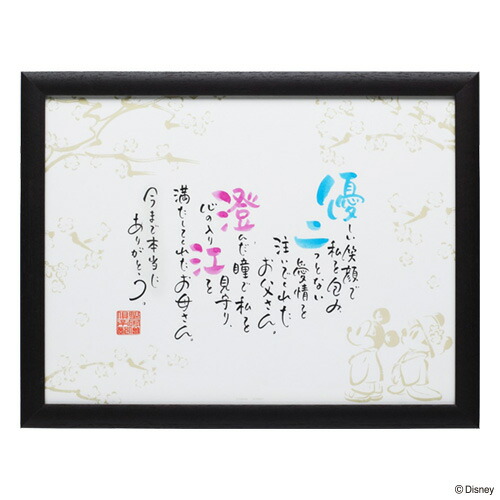 優しい笑顔で
私を包み
二つとない
愛情を
注いでくれた
お父さん。
澄んだ瞳で私を
見守り、
心の入り江を
満たしてくれたお母さん。
今まで本当に
ありがとう。
© Disney